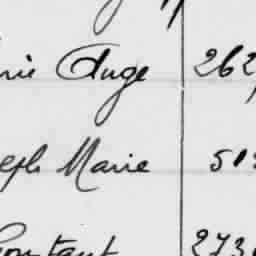 rie Ange 262
seph Marie 512
Constant 273